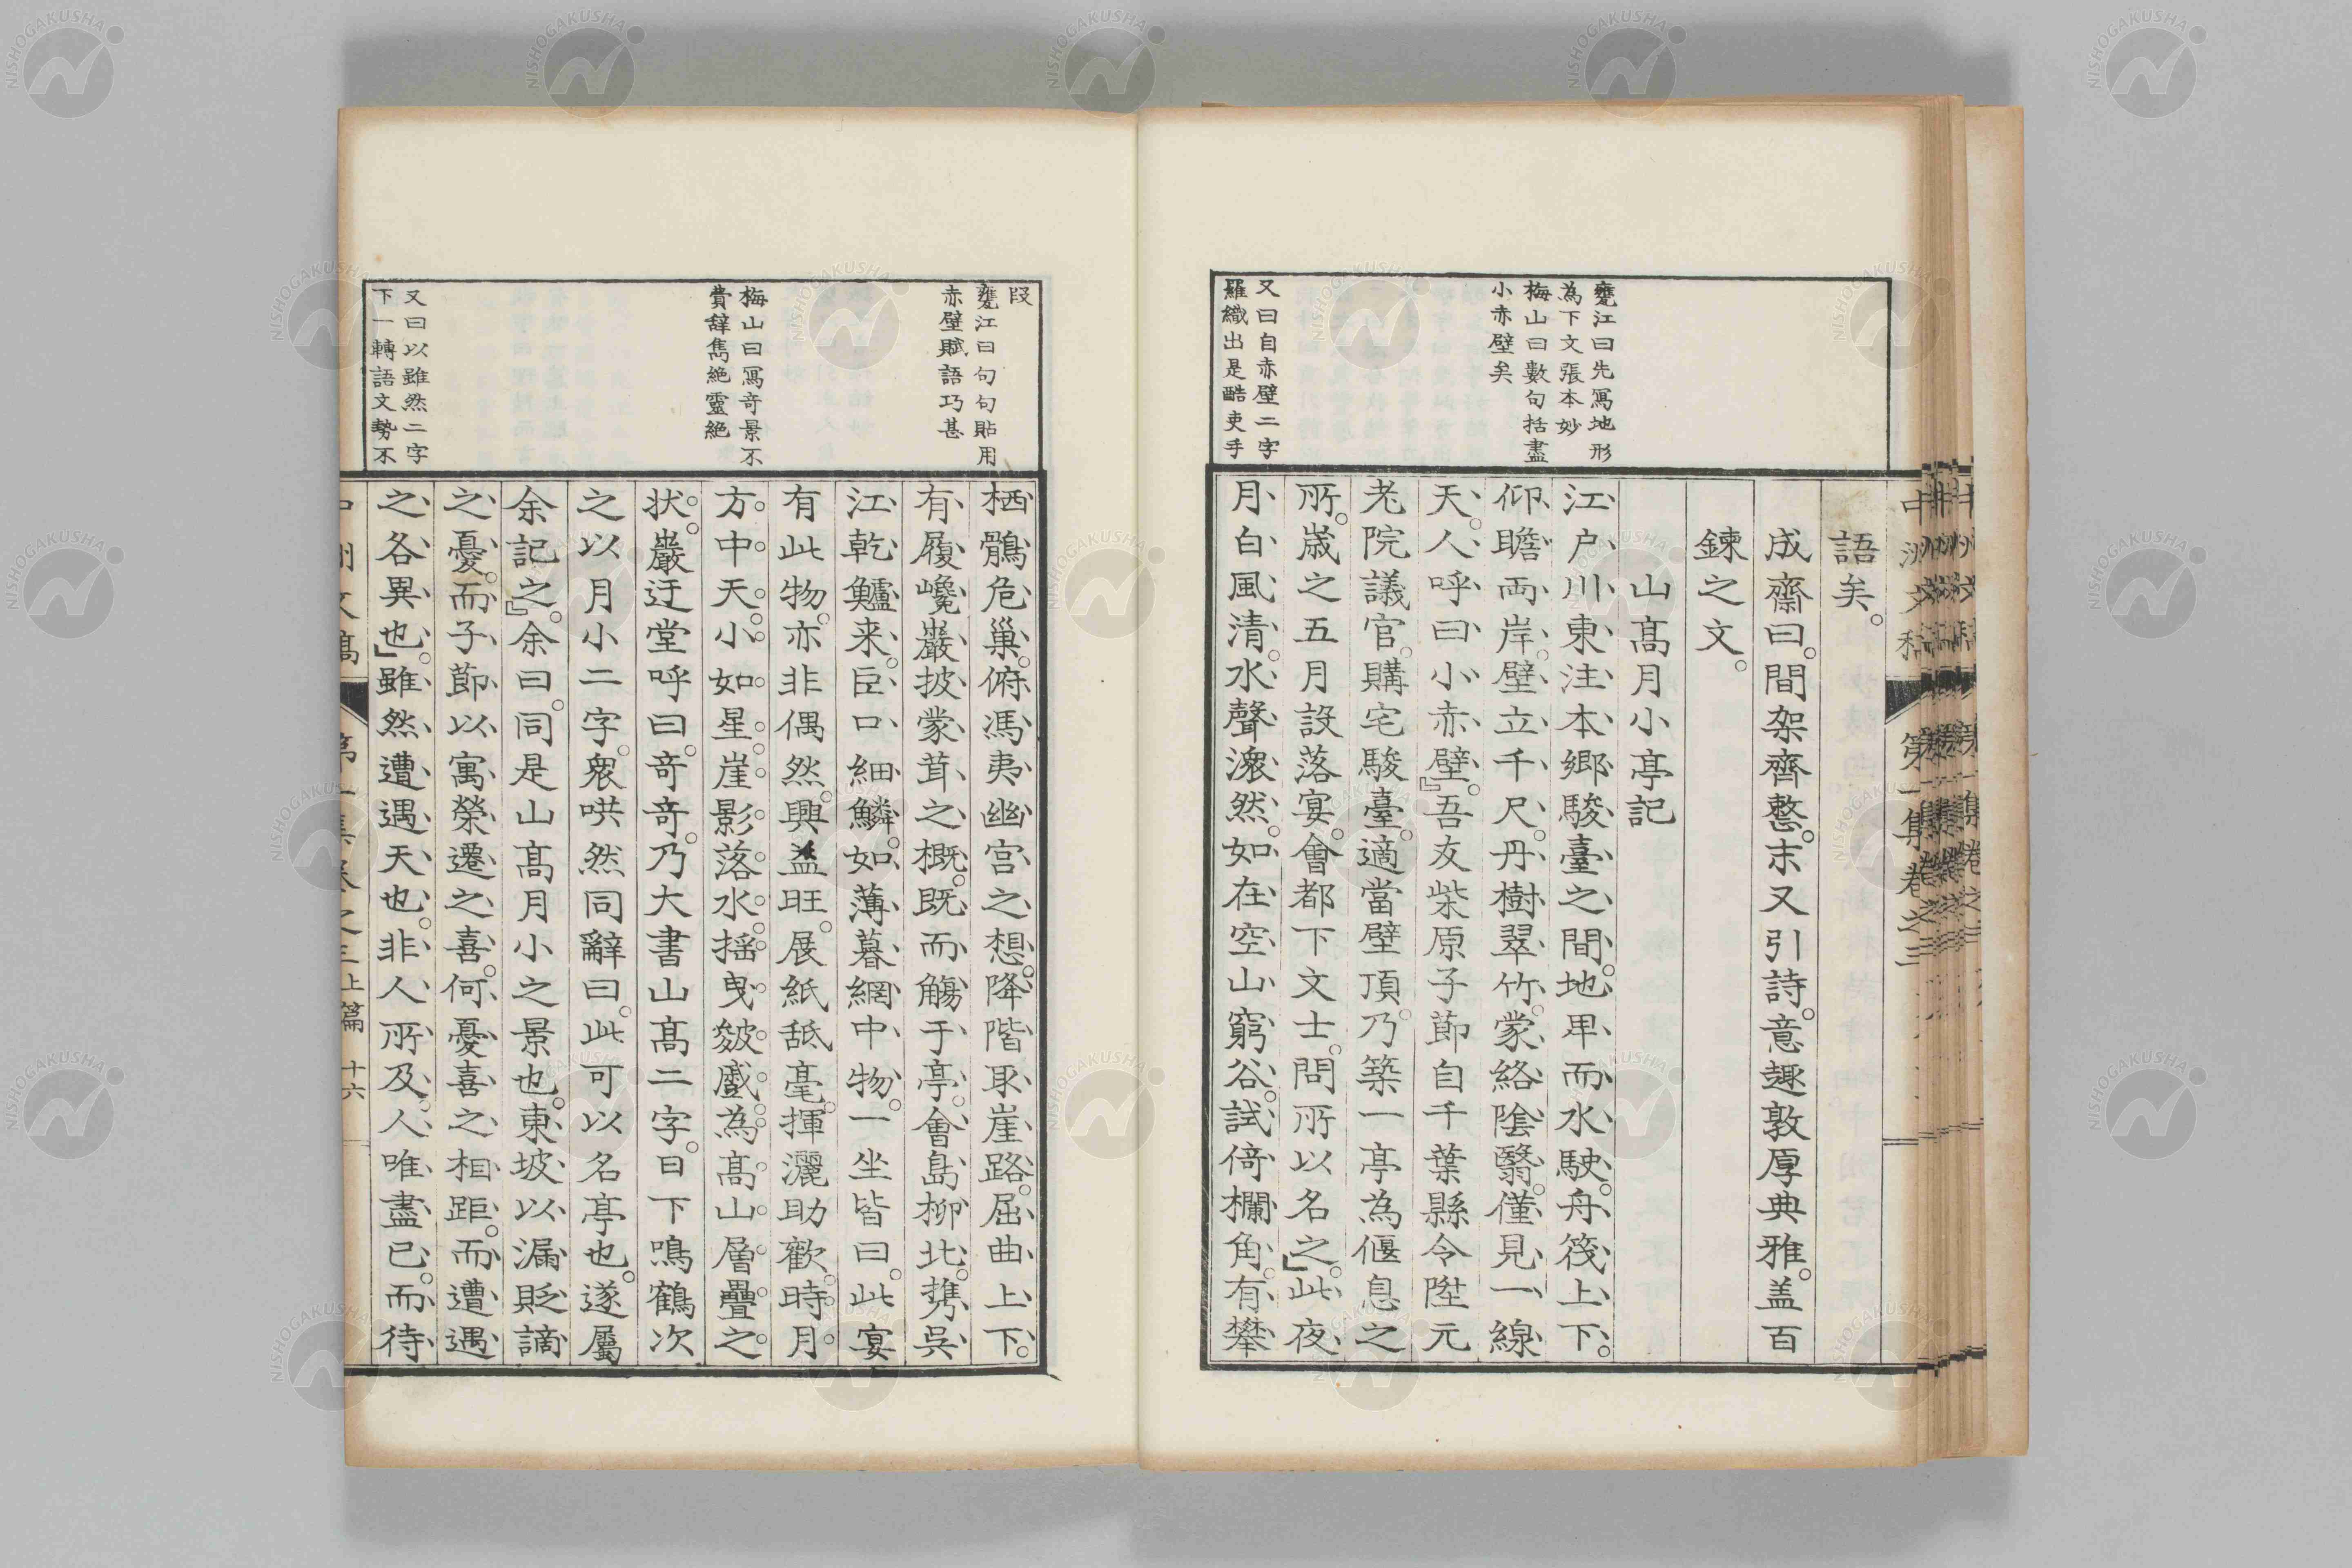 甕江曰先寫地形
為下文張本妙
梅山曰數句括盡
小赤壁矣
又曰自赤壁二字
羅織出是酷吏手
語矣。
成齋曰。間架齊整。末又引詩。意趣敦厚典雅。盖百
鍊之文。
山髙月小亭記
江户川東注本郷駿臺之間。地卑而水駛。舟筏上下。
仰瞻両岸。壁立千尺。丹樹翠竹。蒙絡陰翳。僅見一線
天。人呼曰小赤壁。』吾友柴原子節自千葉縣令陞元
老院議官。購宅駿臺。適當壁頂。乃築一亭為偃息之
所。嵗之五月設落宴。會都下文士。問所以名之。』此夜
月白風清。水聲㶕然。如在空山窮谷。試倚欄角。有攀
段
甕江曰句句貼用
赤壁賦語巧甚
梅山曰寫奇景不
費辞雋絶靈絶
又曰以雖然二字
下一轉語文勢不
栖鶻危巢。俯馮夷幽宫之想。降階取崖路。屈曲上下。
有履巉巖披蒙茸之概。既而觴于亭。會島柳北。携呉
江乾鱸来。巨口細鱗。如薄暮網中物。一坐皆曰。此宴
有此物。亦非偶然。興益旺。展紙舐毫。揮灑助歡。時月
方中天。小如星。崖影落水。揺曳皴蹙。為髙山層疊之
状。巖迂堂呼曰。竒竒。乃大書山髙二字。日下鳴鶴次
之以月小二字。衆哄然同辭曰。此可以名亭也。遂屬
余記之。』余曰。同是山髙月小之景也。東坡以漏貶謫
之憂。而子節以寓榮遷之喜。何憂喜之相距。而遭遇
之各異也。』雖然遭遇天也。非人所及。人唯盡已。而待
中洲文稿 第一集卷之三上篇 十六